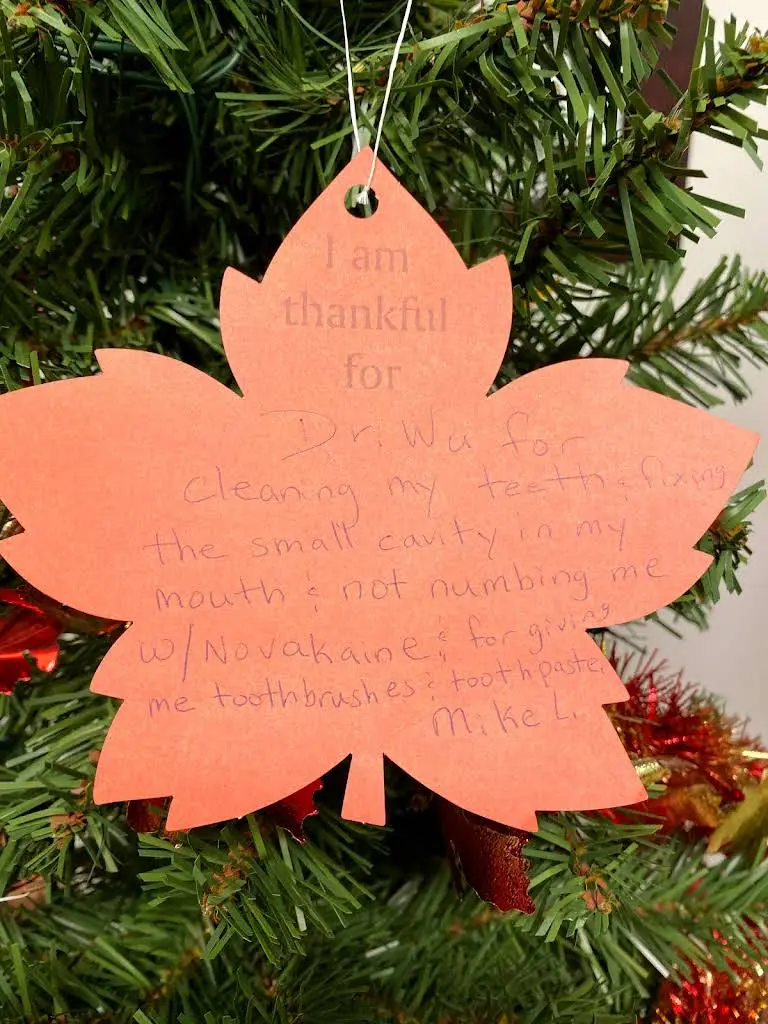 I am
thankful
for
Dr. Wu for
cleaning my teeth & fixing
the small cavity in my
mouth & not numbing me
w/Novakaine & for giving
me toothbrushes & toothpaste.
Mike L.